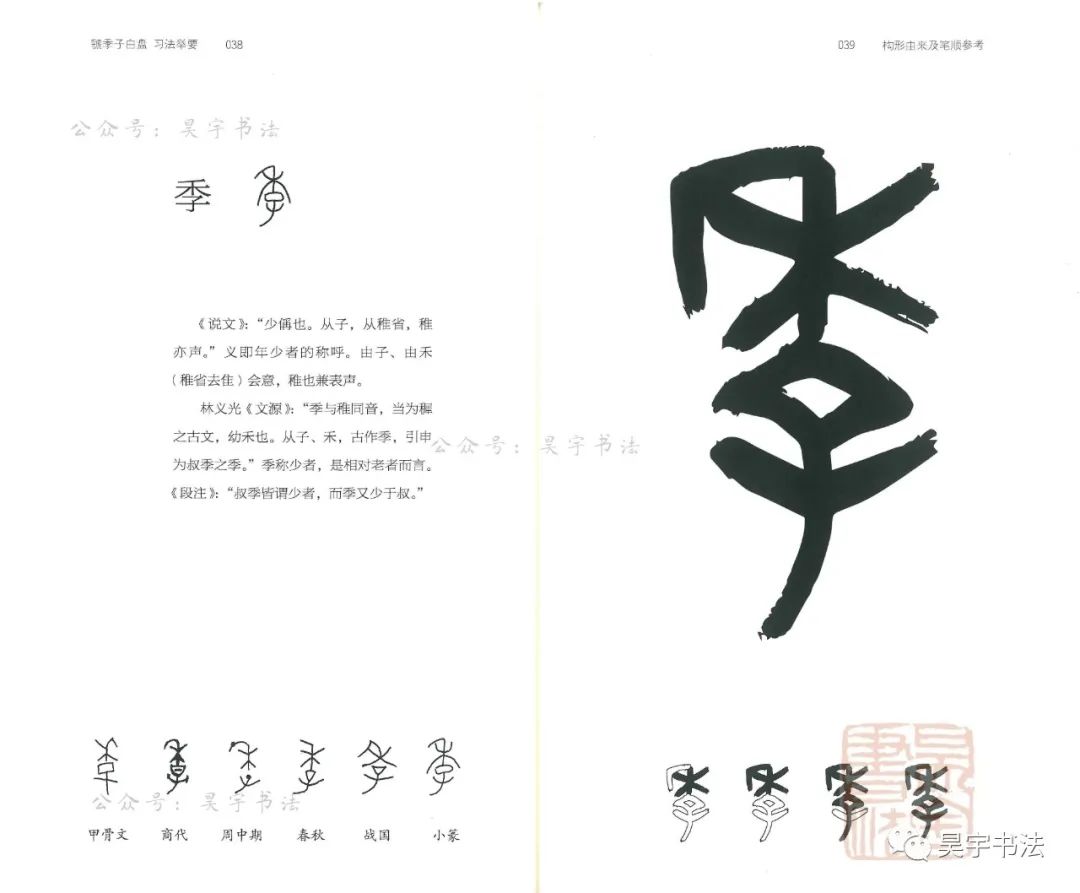 虢季子白盘 习法举要 038
公众号：昊宇书法
季 季
《说文》：“少偁也。从子，从稚省，稚
亦声。”义即年少者的称呼。由子、由禾
（稚省去隹）会意，稚也兼表声。
林义光《文源》：“季与稚同音，当为穉
之古文，幼禾也。从子、禾，古作季，引申
为叔季之季。”季称少者，是相对老者而言。
《段注》：“叔季皆谓少者，而季又少于叔。”
公众号：昊宇书法
季 季 季 季 季 季
公众号：昊宇书法
甲骨文 商代 周中期 春秋 战国 小篆
039 构形由来及笔顺参考
季
季 季 季 季
昊宇书法
昊宇书法